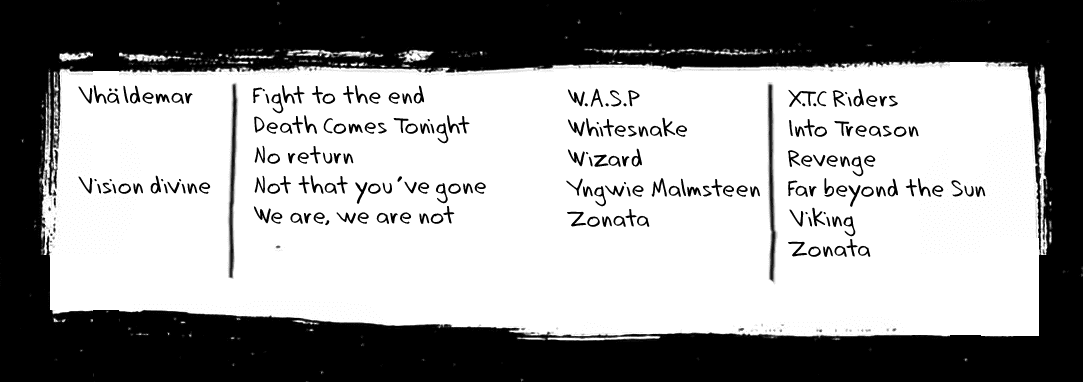 Vhäldemar
Vision divine
Fight to the end
Death Comes Tonight
No return
Not that you've gone
We are, we are not
W.A.S.P
Whitesnake
Wizard
Yngwie Malmsteen
Zonata
X.T.C Riders
Into Treason
Revenge
Far beyond the Sun
Viking
Zonata